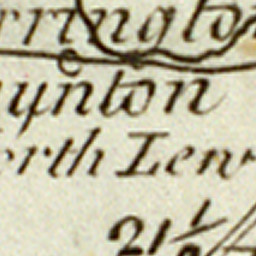 rringto
ynton
erth Lew
21 1/2